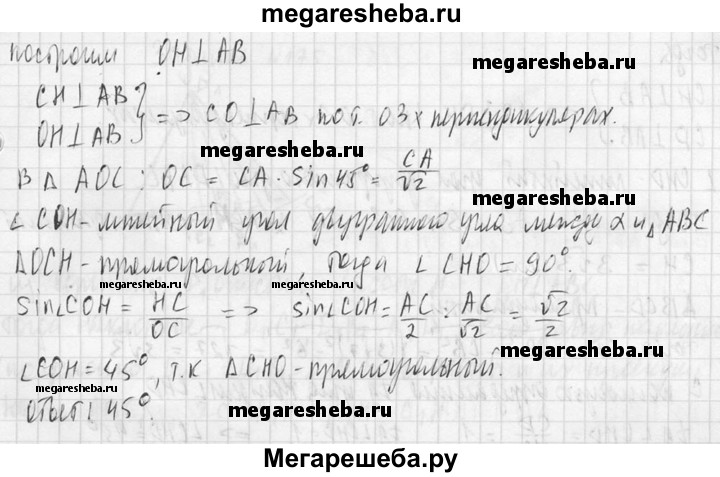 megaresheba.ru
построим OH⊥AB
megaresheba.ru
CH⊥AB
OH⊥AB } => CO⊥AB по т. о 3х перпендикулярах.
megaresheba.ru
В Δ AOC: OC = CA · Sin45° = CA/√2
megaresheba.ru
∠ COH - линейный угол двугранного угла между α и Δ ABC
ΔOCH - прямоугольный, тогда ∠ CHO = 90°.
megaresheba.ru
Sin∠COH = HC/OC => sin∠COH = AC/2 : AC/√2 = √2/2
megaresheba.ru
∠COH = 45°, т.к ΔCHO - прямоугольный.
megaresheba.ru
Ответ: 45°.
megaresheba.ru
Мегарешеба.ру